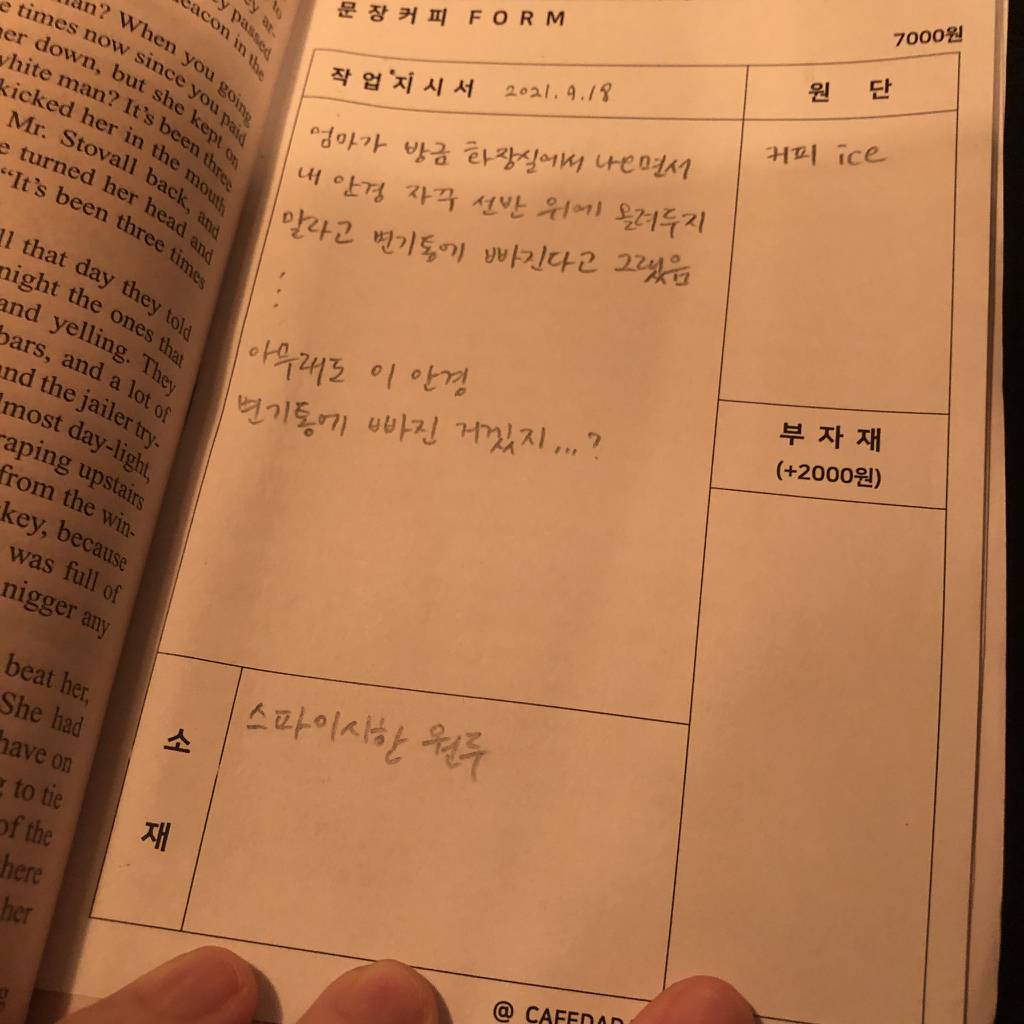 an? When you going
e times now since you paid
her down, but she kept on
white man? It's been three
kicked her in the mouth
Mr. Stovall back, and
e turned her head and
"It's been three times
ll that day they told
night the ones that
and yelling. They
bars, and a lot of
and the jailer try-
lmost day-light,
raping upstairs
from the win-
key, because
was full of
nigger any
beat her,
She had
have on
g to tie
of the
here
her
문장커피 FORM
7000원
작업지시서 2021.9.18
엄마가 방금 화장실에서 나오면서
내 안경 자꾸 선반 위에 올려두지
말라고 변기통에 빠진다고 그랬음
:
:
아무래도 이 안경
변기통에 빠진 거겠지...?
원단
커피 ice
부자재
(+2000원)
소재
스파이시한 원두
@ CAFEDAD